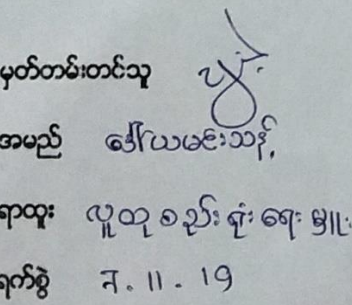 မှတ်တမ်းတင်သူ
အမည် ဒေါ်ယမင်းသန့်
ရာထူး လူထုစည်းရုံးရေးမှူး
ရက်စွဲ 7.11.19